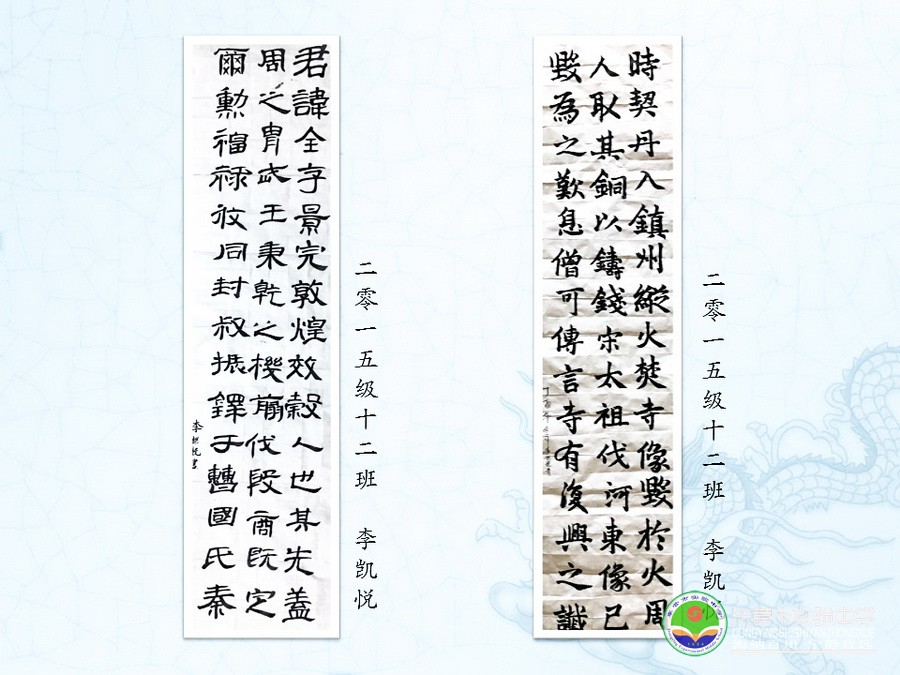 君諱全字景完敦煌效穀人也其先蓋
周之胄武王秉乾之機翦伐殷商既定
爾勳福祿攸同封叔振鐸于曹國氏秦
二零一五级十二班 李凯悦
時契丹入鎮州縱火焚寺像毀於火周
人取其銅以鑄錢宋太祖伐河東像已
毀為之歎息僧可傳言寺有復興之讖
丁酉年
二零一五级十二班 李凯